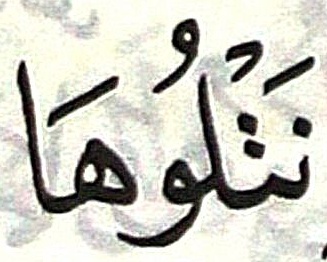 نَتْلُوهَا